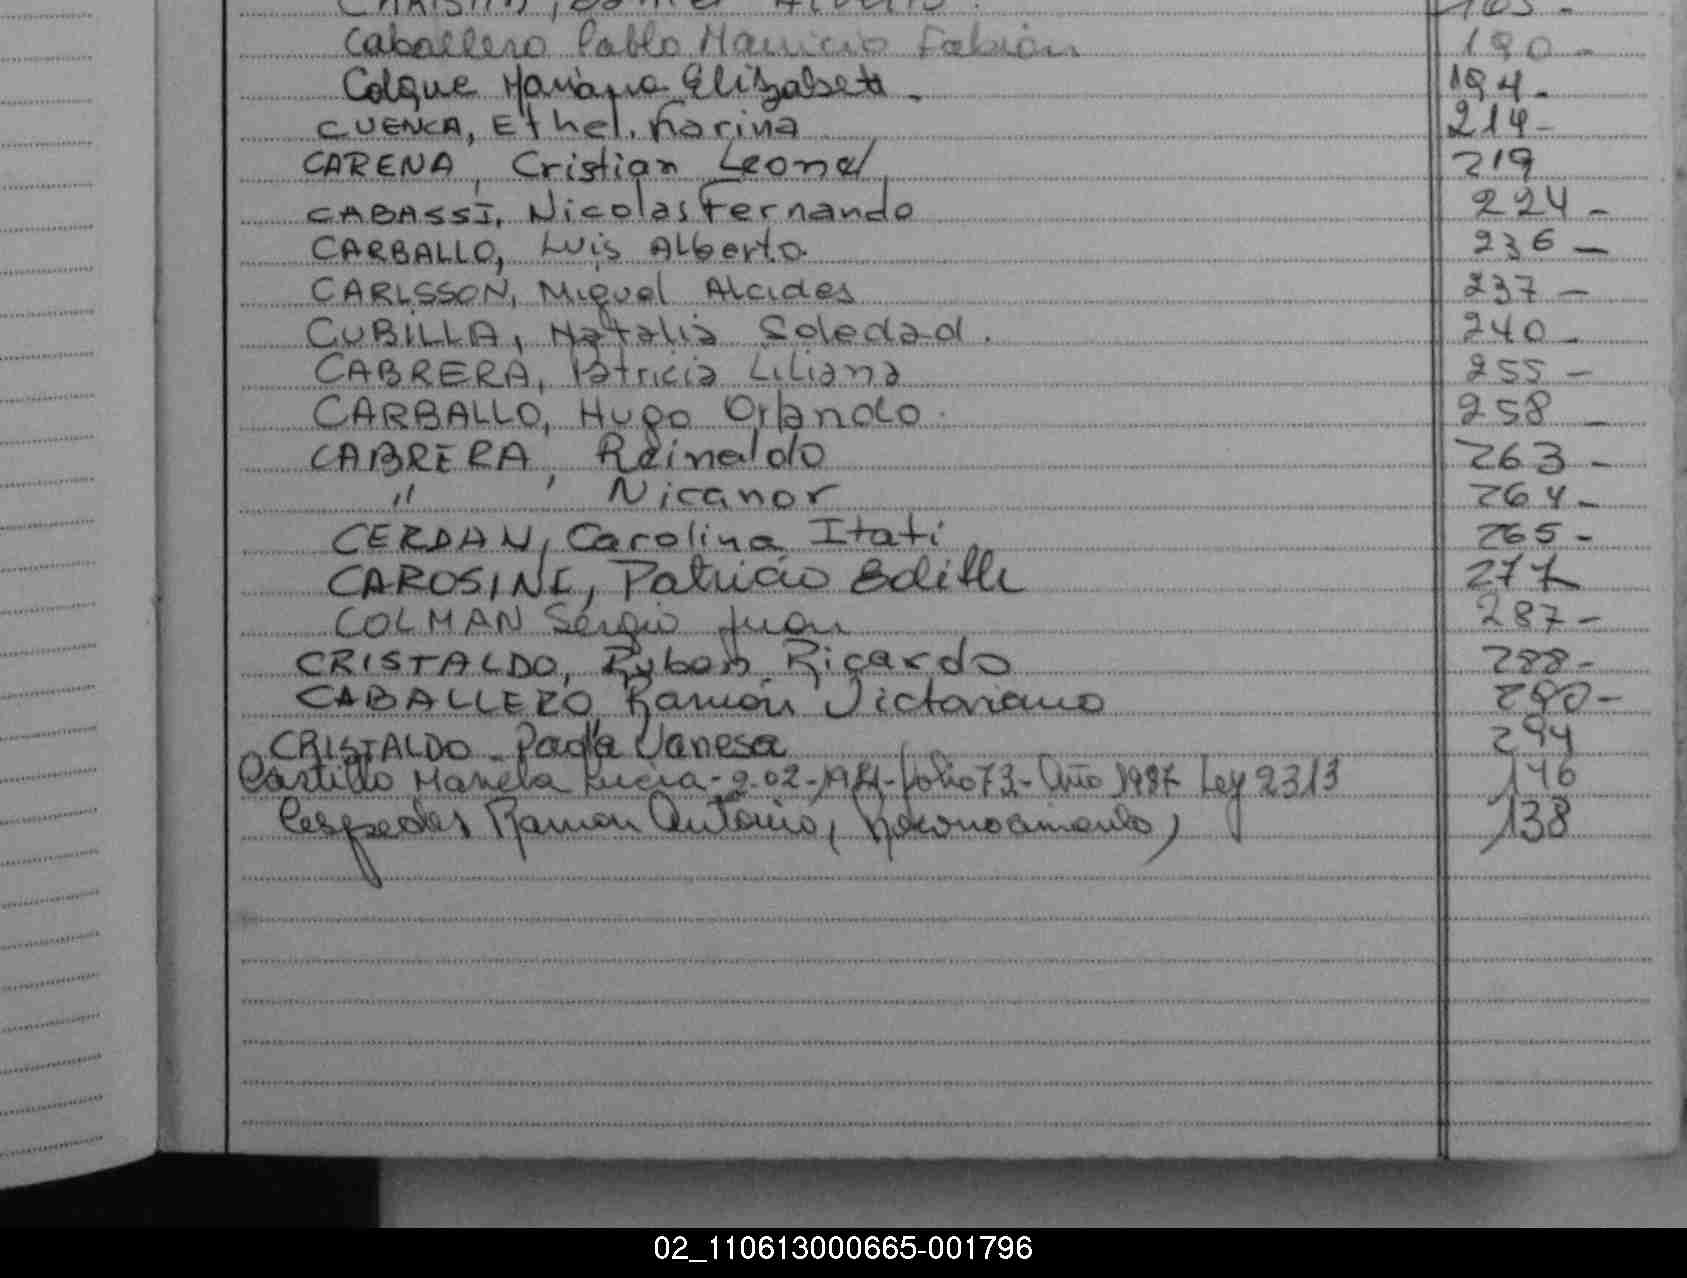 Caballero Pablo Mauricio Fabián 190 -
Colque Mariana Elizabeth - 194 -
CUENCA, Ethel Karina 214 -
CARENA, Cristian Leonel 219
CABASSI, Nicolas Fernando 224 -
CARBALLO, Luis Alberto. 236 -
CARLSSON, Miguel Alcides 237 -
CUBILLA, Natalia Soledad. 240 -
CABRERA, Patricia Liliana 255 -
CARBALLO, Hugo Orlando. 258 -
CABRERA, Reinaldo 263 -
" , Nicanor 264 -
CERDAN, Carolina Itati 265 -
CAROSINI, Patricio Edith 277
COLMAN Sergio Juan 287 -
CRISTALDO, Ruben Ricardo 288 -
CABALLERO Ramón Victoriano 290 -
CRISTALDO - Paola Vanesa 294
Castillo Mariela Lucia - 2-02- - folio 73 - Año 1987 Ley 2313 146
Cespedes Ramon Antonio, (Reconocimiento) 138
02_110613000665-001796